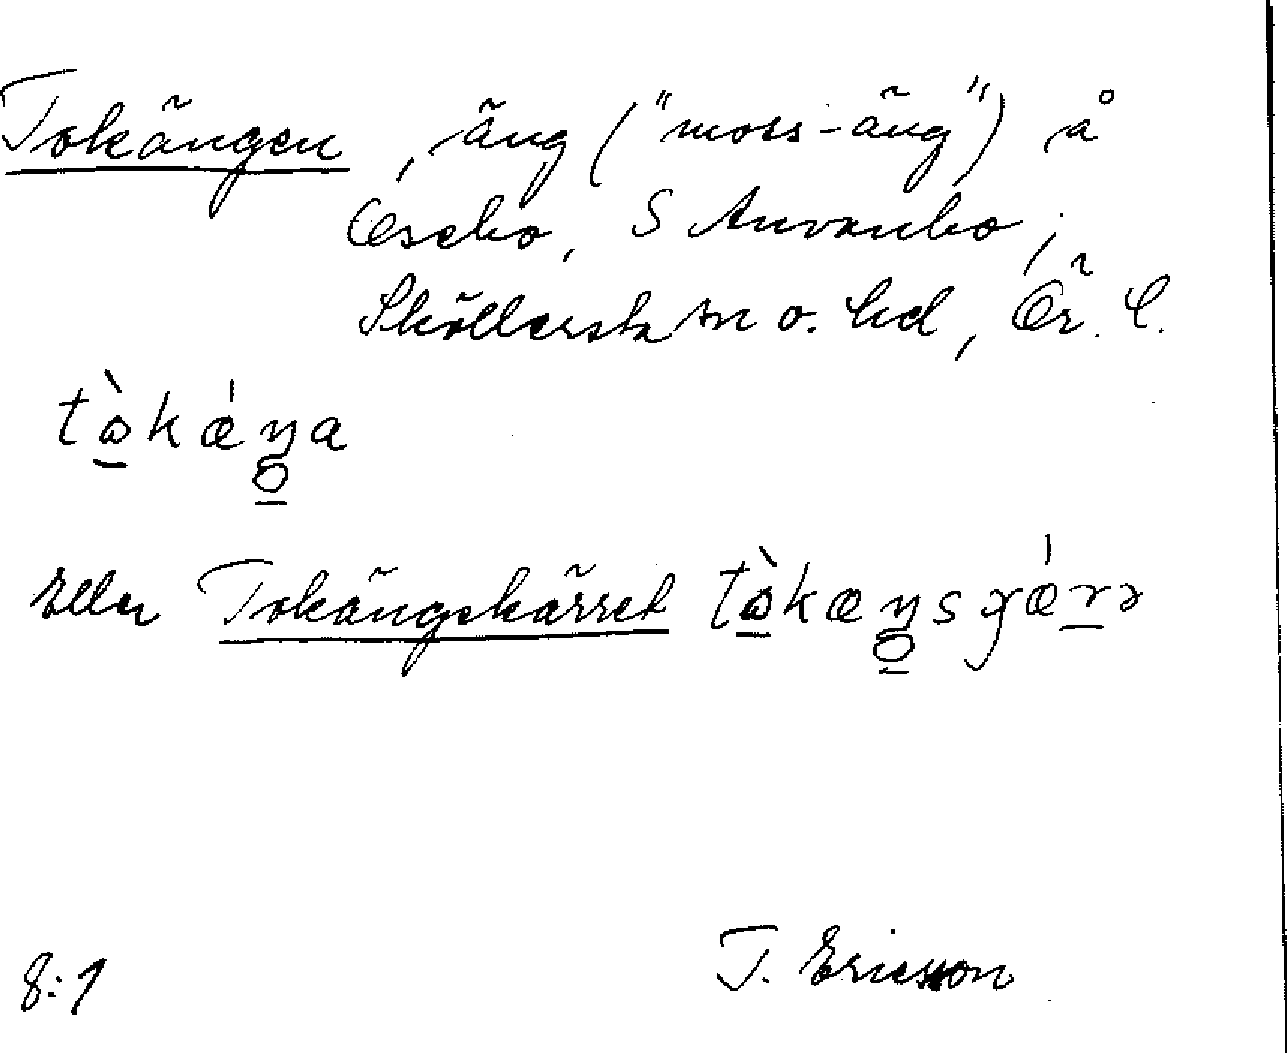 Tokängen, äng ("moss-äng") å
Oseko, S Anvanbo;
Sköllersta sn o. hd, Ör. l.
tɔ̀kǽŋa
Eller Tokängskärret tɔ̀kæŋsɣǽrə
8:1 T. Ericsson